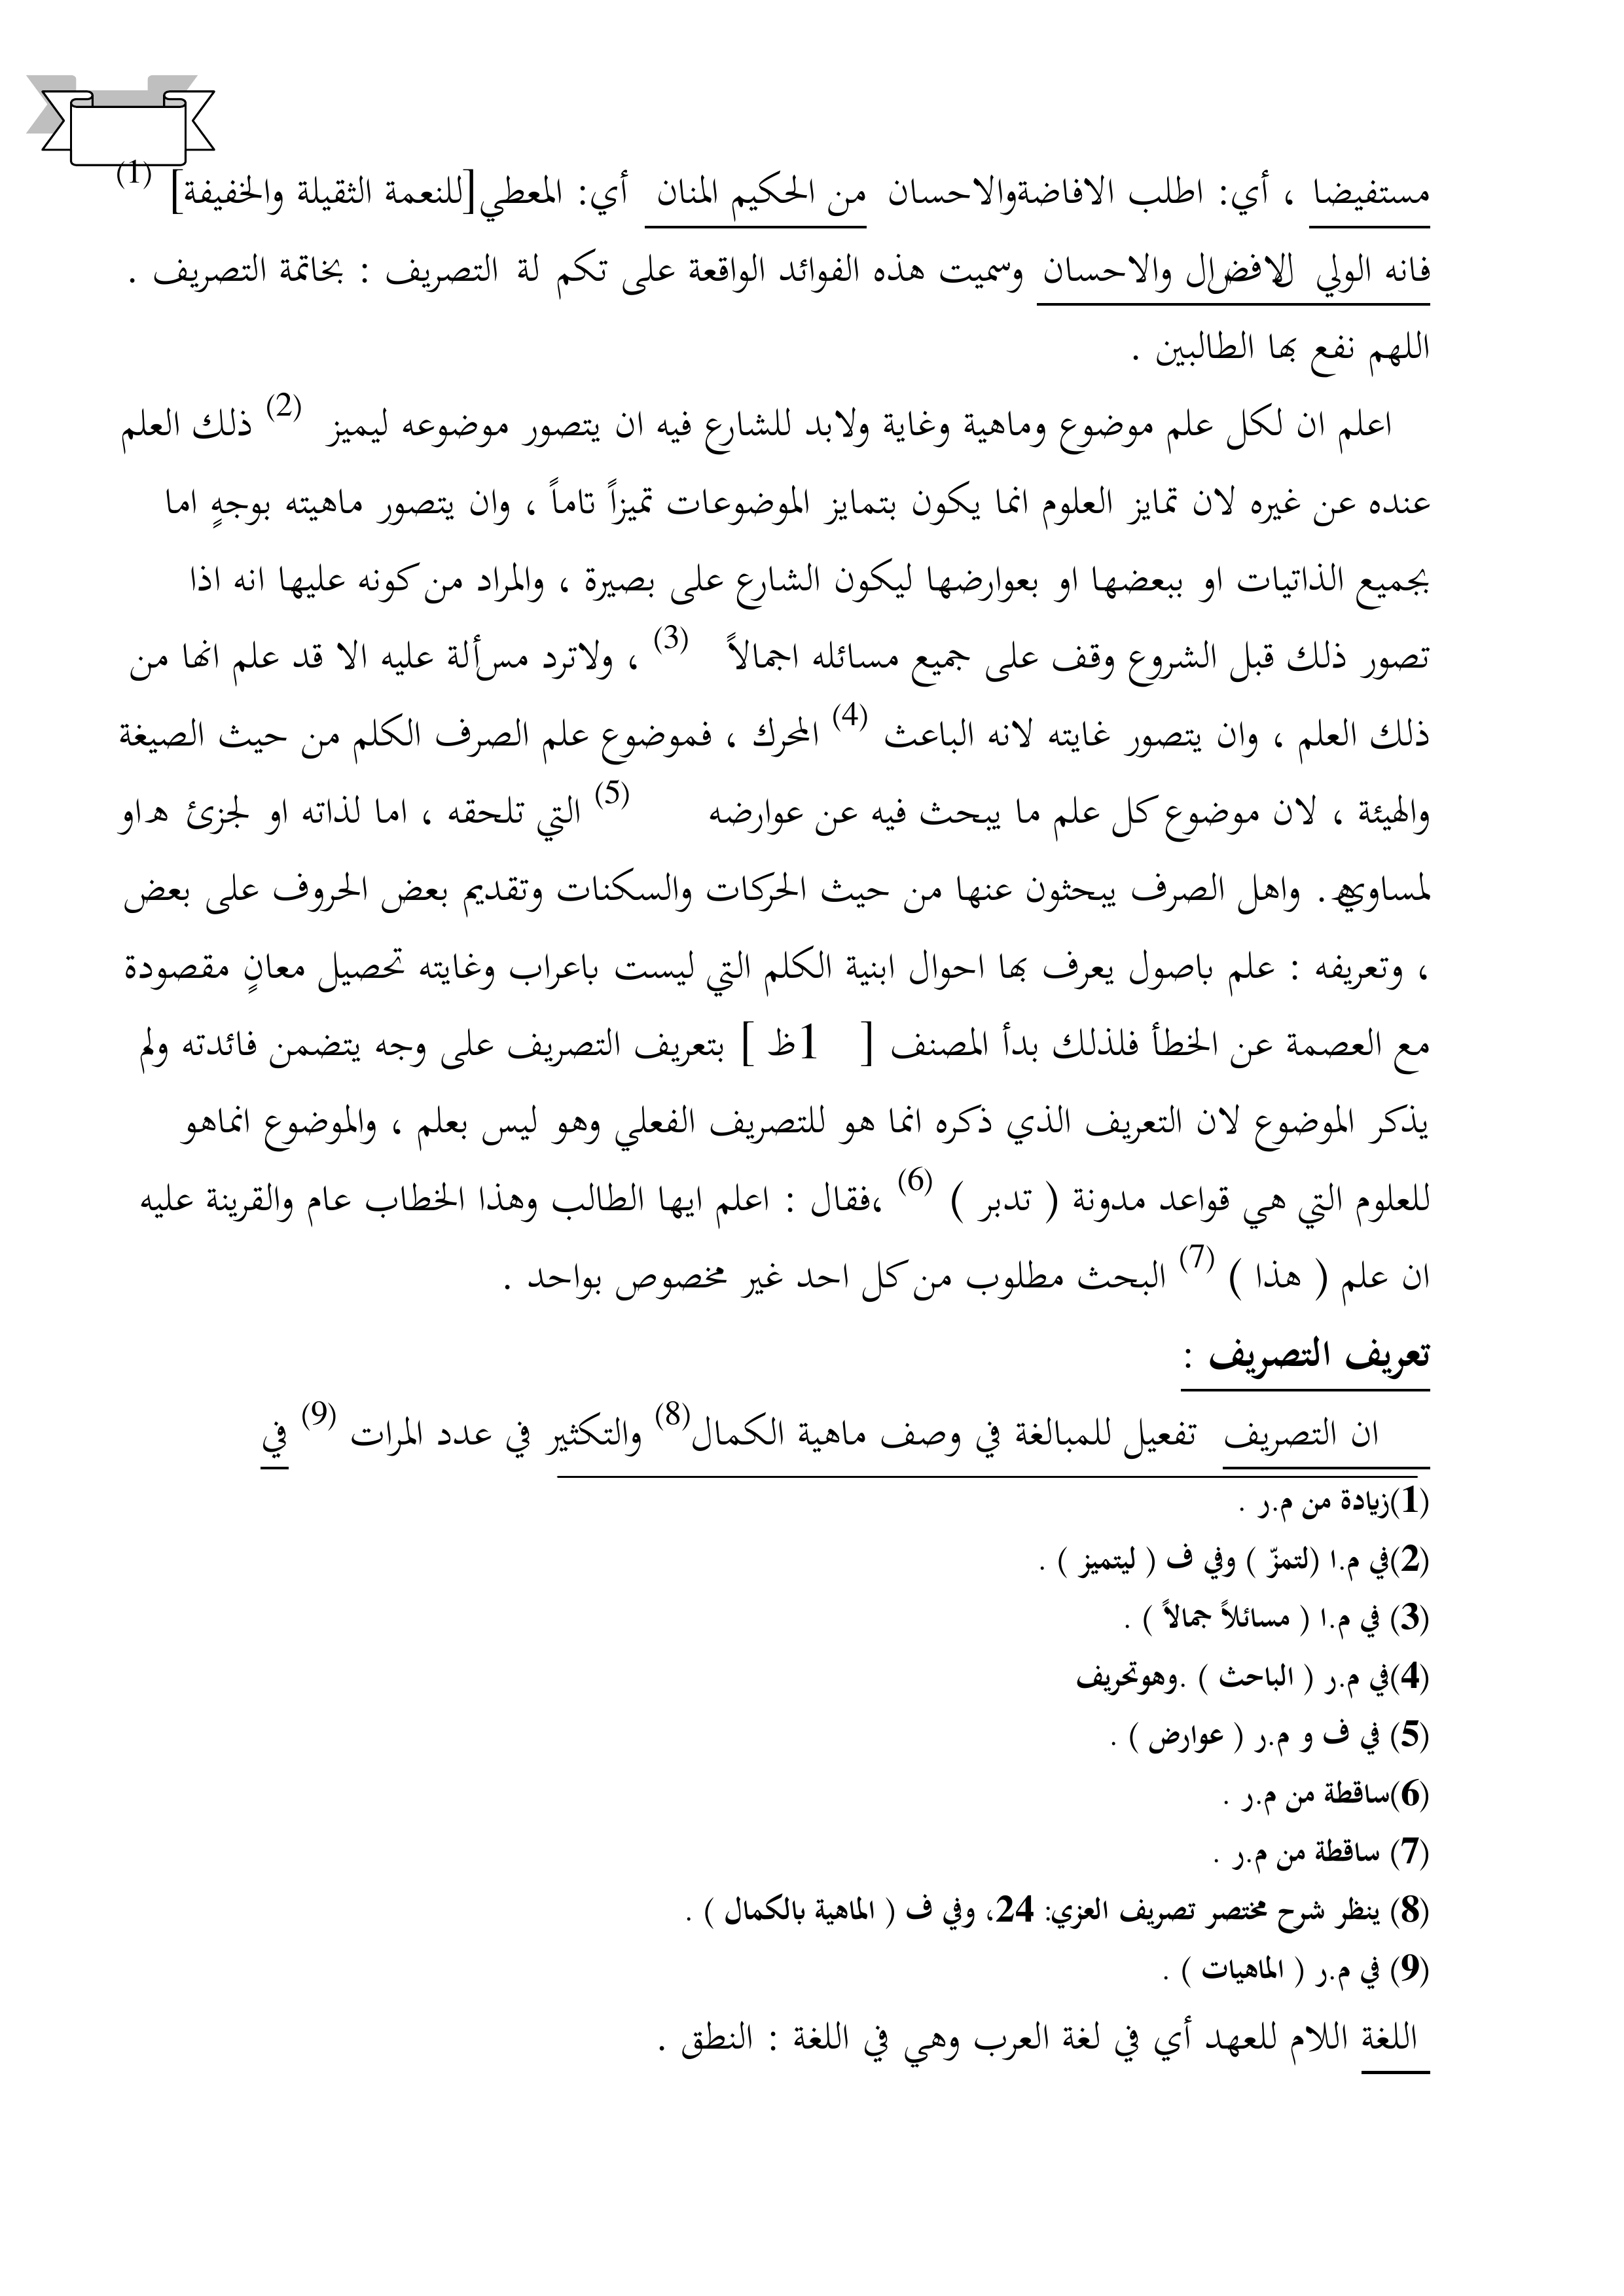 مستفيضا ، أي: اطلب الافاضةوالاحسان من الحكيم المنان أي: المعطي[للنعمة الثقيلة والخفيفة] (1)
فانه الولي للافضال والاحسان وسميت هذه الفوائد الواقعة على تكم لة التصريف : بخاتمة التصريف .
اللهم نفع بها الطالبين .
اعلم ان لكل علم موضوع وماهية وغاية ولابد للشارع فيه ان يتصور موضوعه ليميز (2) ذلك العلم
عنده عن غيره لان تمايز العلوم انما يكون بتمايز الموضوعات تميزاً تاماً ، وان يتصور ماهيته بوجهٍ اما
بجميع الذاتيات او ببعضها او بعوارضها ليكون الشارع على بصيرة ، والمراد من كونه عليها انه اذا
تصور ذلك قبل الشروع وقف على جميع مسائله اجمالاً (3) ، ولاترد مسألة عليه الا قد علم انها من
ذلك العلم ، وان يتصور غايته لانه الباعث (4) المحرك ، فموضوع علم الصرف الكلم من حيث الصيغة
والهيئة ، لان موضوع كل علم ما يبحث فيه عن عوارضه (5) التي تلحقه ، اما لذاته او لجزئ ه او
لمساويه . واهل الصرف يبحثون عنها من حيث الحركات والسكنات وتقديم بعض الحروف على بعض
، وتعريفه : علم باصول يعرف بها احوال ابنية الكلم التي ليست باعراب وغايته تحصيل معانٍ مقصودة
مع العصمة عن الخطأ فلذلك بدأ المصنف [ 1ظ ] بتعريف التصريف على وجه يتضمن فائدته ولم
يذكر الموضوع لان التعريف الذي ذكره انما هو للتصريف الفعلي وهو ليس بعلم ، والموضوع انماهو
للعلوم التي هي قواعد مدونة ( تدبر ) (6) ،فقال : اعلم ايها الطالب وهذا الخطاب عام والقرينة عليه
ان علم ( هذا ) (7) البحث مطلوب من كل احد غير مخصوص بواحد .
تعريف التصريف :
ان التصريف تفعيل للمبالغة في وصف ماهية الكمال(8) والتكثير في عدد المرات (9) في
(1)زيادة من م.ر .
(2)في م.ا (لتمزّ ) وفي ف ( ليتميز ) .
(3) في م.ا ( مسائلاً جمالاً ) .
(4)في م.ر ( الباحث ) .وهوتحريف
(5) في ف و م.ر ( عوارض ) .
(6)ساقطة من م.ر .
(7) ساقطة من م.ر .
(8) ينظر شرح مختصر تصريف العزي: 24، وفي ف ( الماهية بالكمال ) .
(9) في م.ر ( الماهيات ) .
اللغة اللام للعهد أي في لغة العرب وهي في اللغة : النطق .